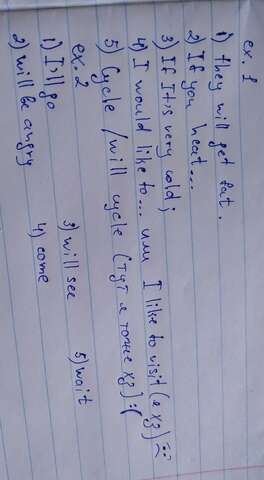 ex. 1
1) they will get fat.
2) If you heat...
3) If It is very cold;
4) I would like to... или I like to visit (я хз)
5) Cycle / will cycle (тут я тоже хз) :(
ex. 2
1) I'll go 3) will see 5) wait
2) will be angry 4) come